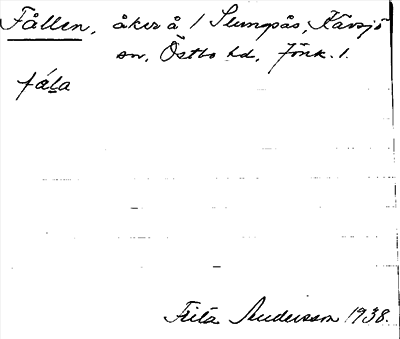 Fållen, åker å 1 Slungsås, Kävsjö
sn, Östbo hd, Jönk. l.
fála
Frita Andersson 1938.